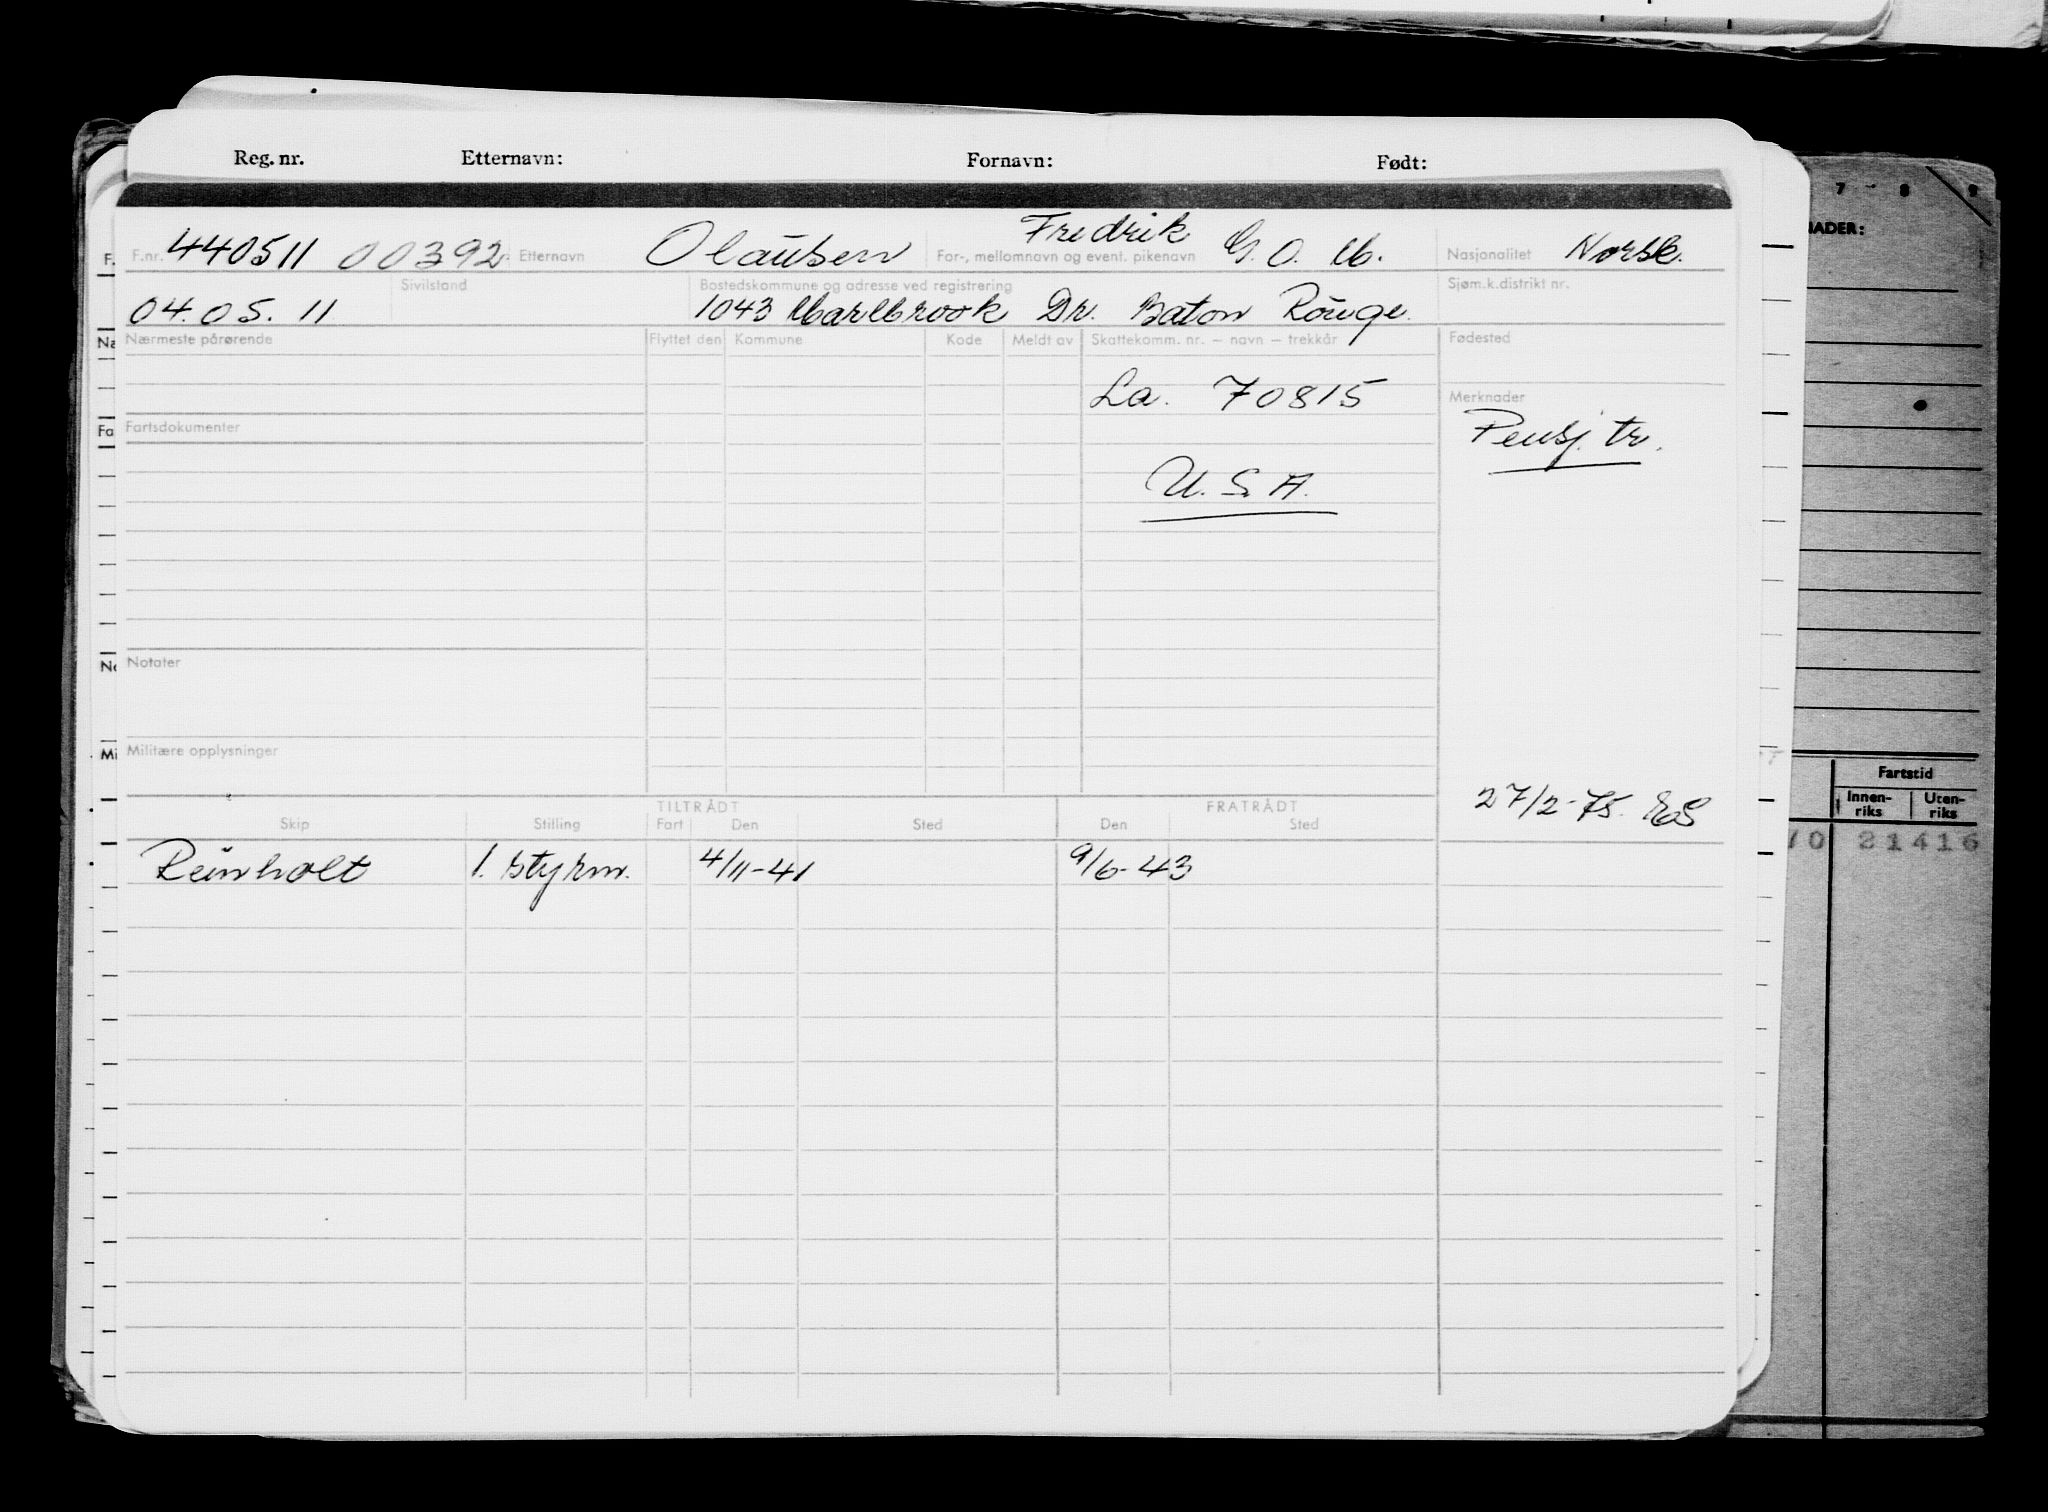 7 - 8 9
Reg. nr. Etternavn: Fornavn: Født:
NADER:
F.nr. 440511 00392 Etternavn Olausen For-, mellomnavn og event. pikenavn Fredrik G. O. M. Nasjonalitet Norsk.
04.05.11 Sivilstand Bostedskommune og adresse ved registrering 1043 Marlbrook Dr. Baton Rouge. Sjøm.k.distrikt nr.
Nærmeste pårørende Flyttet den Kommune Kode Meldt av Skattekomm. nr. – navn – trekkår Fødested
La. 70815
Merknader
Fartsdokumenter
Pensj. tr.
U.S.A.
Notater
Militære opplysninger
Fartstid
Innen-riks Uten-riks
27/2-75. ES
TILTRÅDT FRATRÅDT
Skip Stilling Fart Den Sted Den Sted
Reinholt 1. styrm. 4/11-41 9/6-43
21416